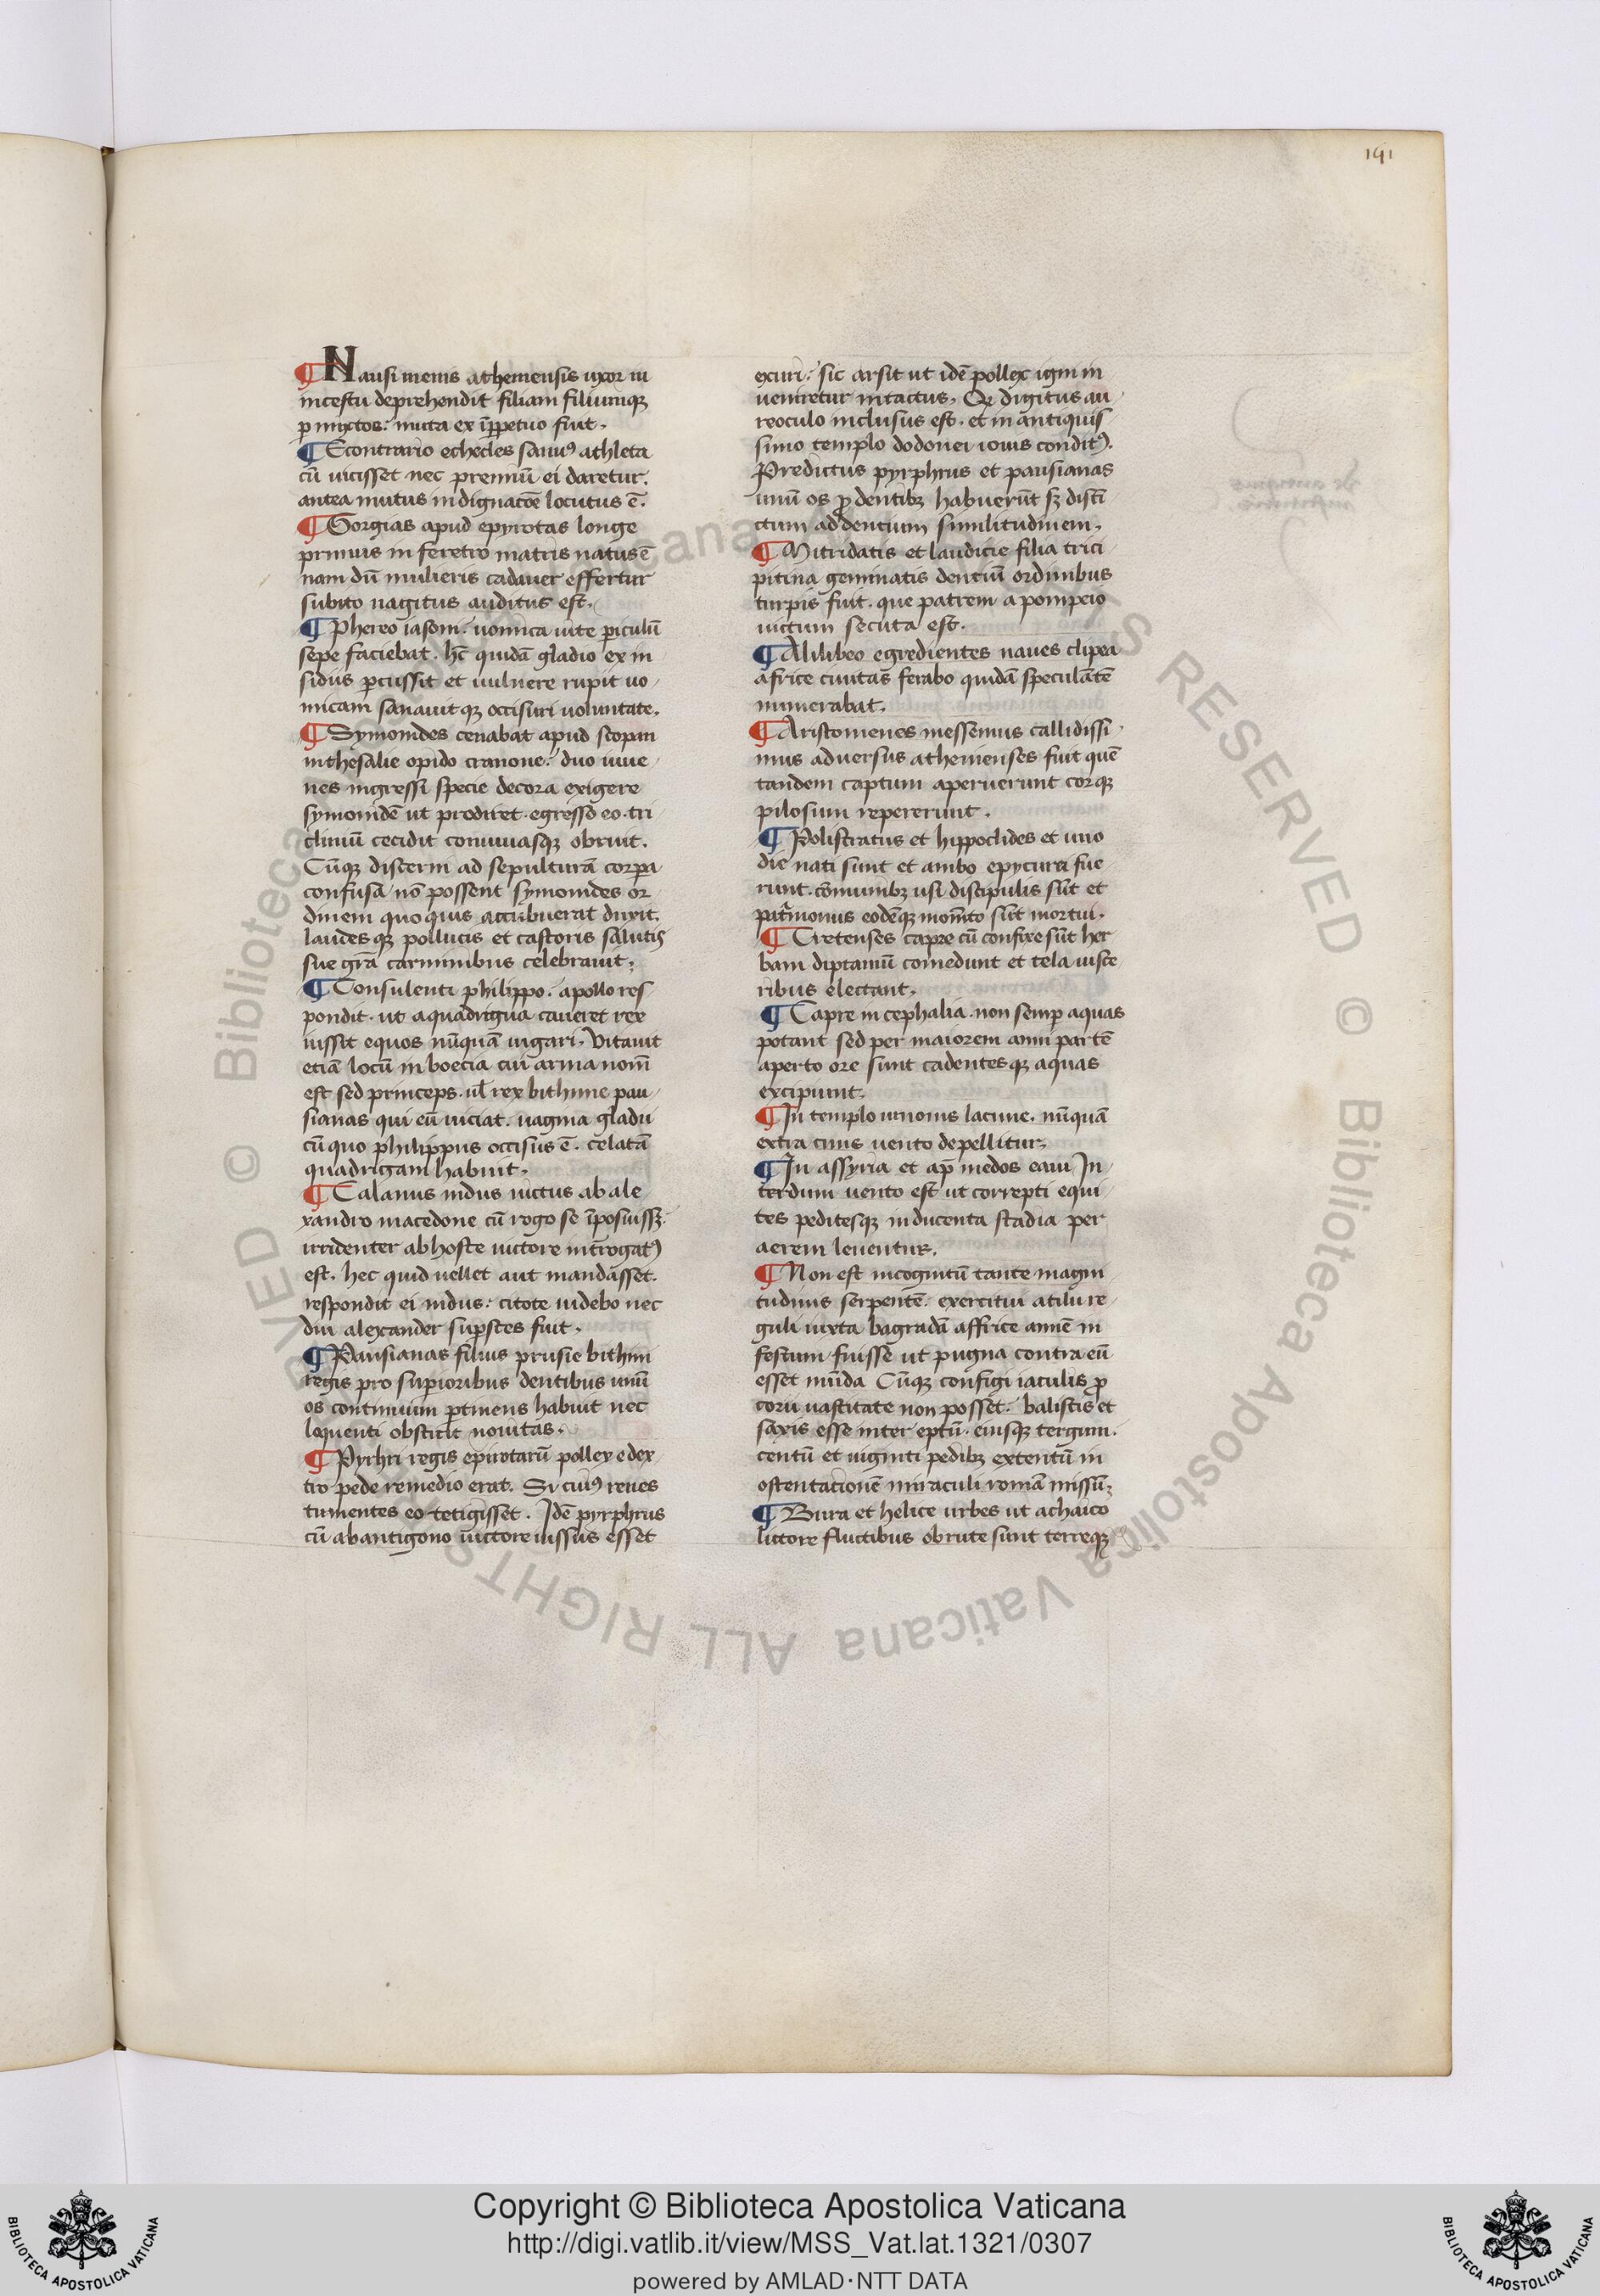 191
¶ Nausimenis atheniensis uxor in
incestu deprehendit filiam filiumqꝫ
ꝑmixtos: muta ex īꝑpetuo fuit.
¶ Econtrario echecles samiꝰ athleta
cū uicisset nec premiū ei daretur.
antea mutus indignacōe locutus ē.
¶ Gorgias apud epyrotas longe
primus in feretro matris natus ē
nam dū mulieris cadauer effertur
subito uagitus auditus est.
¶ Phereo iasoni. uomica uite ꝑiculū
sepe faciebat. hc̄ quidā gladio ex in
sidiis ꝑcussit et uulnere rupit uo
micam sanauitqꝫ occisuri uoluntate.
¶ Symonides cenabat apud scopam
in thesalie opido cranone. duo iuue
nes ingressi specie decora exigere
symonidē ut prodiret. egresso eo. tri
clinium cecidit conuiuasqꝫ obruit.
Cūqꝫ discerni ad sepulturā corꝑa
confusa nō possent symonides or
dinem quo quis accubuerat dixit.
laudesqꝫ pollucis et castoris salutis
sue gra̅ carminibus celebrauit.
¶ Consulenti philippo. apollo res
pondit. ut a quadrigua caueret rex
iussit equos nūquā iugari. Vitauit
etiā locū in boecia cui arma nomē
est sed princeps. ul̄ rex bithinie pau
sianas qui eū uiciat. uagina gladii
cū quo philippus occisus ē. celatā
quadrigam habuit.
¶ Calanus indus uictus ab ale
xandro macedone cū rogo se īposuissꝫ.
irridenter ab hoste uictore int̄rogatꝰ
est. hec quid uellet aut mandasset.
respondit ei indus: cito te uidebo nec
diu alexander suꝑstes fuit.
¶ Pausianas filius prusie bithini
regis pro suꝑioribus dentibus unū
os continuum ꝑtinens habuit nec
loquenti obstitit nouitas.
¶ Pyrhri regis epirotarū pollex e dex
tro pede remedio erat. Si cuiꝰ renes
tumentes eo tetigisset. Idē pyrphrus
cū ab antigono uictore iussus esset
exuri: sic arsit ut idē pollex igni in
ueniretur intactus. Qi digitus au
reoculo inclusus est. et in antiquis
simo templo dodonei iouis conditꝰ.
Predictus pyrphrus et pausianas
unū os ꝓ dentibꝫ habuerūt sꝫ disti
ctum ad dentium similitudinem.
¶ Mitridatis et laudicie filia trici
pitina geminatis dentiū ordinibus
turpis fuit. que patrem a pompeio
uictum secuta est.
¶ A lilibeo egredientes naues clipea
africe ciuitas ferabo quidā speculātē
numerabat.
¶ Aristomenes messenius callidissi
mus aduersus athenienses fuit quē
tandem captum aperuerunt corqꝫ
pilosum repererunt.
¶ Polistratus et hippoclides et uno
die nati sunt et ambo epycurei fue
runt. cōmunibꝫ usi discipulis sūt et
patͥmoniis eodēqꝫ momēto sūt mortui.
¶ Cretenses capre cū confixe sūt her
bam diptamū comedunt et tela uisce
ribus electant.
¶ Capre in cephalia. non semꝑ aquas
potant sed per maiorem anni partē
aperto ore sunt cadentesqꝫ aquas
excipiunt.
¶ In templo iunonis lacinie. nūquā
extra cinis uento depellitur.
¶ In assyria et ap̄ medos eaui In
terdum uento est ut correpti equi
tes peditesqꝫ in ducenta stadia per
aerem leuentur.
¶ Non est incognitū tante magni
tudinis serpentē. exercitui atilii re
guli iuxta bagradā affrice amnē in
festum fuisse ut pugna contra eū
esset mūda Cūqꝫ configi iaculis ꝓ
corii uastitate non posset. balistis et
saxis esse inter eptū. eiusqꝫ tergum.
centū et uiginti pedibꝫ extentū in
ostentationē miraculi romā missū.
¶ Bura et helice urbes ut achaico
litore fluctibus obrute sunt terreqꝫ
© Biblioteca Apostolica Vaticana ALL RIGHTS RESERVED
Copyright © Biblioteca Apostolica Vaticana
http://digi.vatlib.it/view/MSS_Vat.lat.1321/0307
powered by AMLAD·NTT DATA
BIBLIOTECA APOSTOLICA VATICANA
BIBLIOTECA APOSTOLICA VATICANA